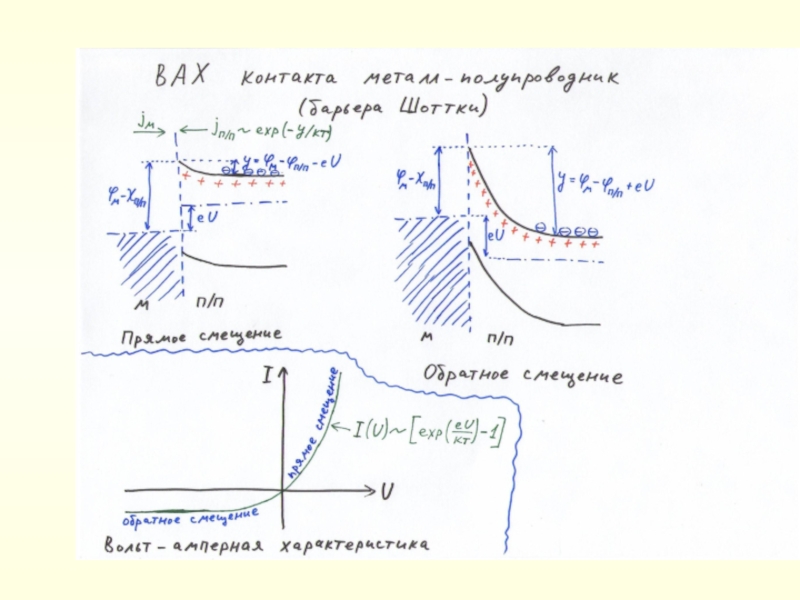 ВАХ контакта металл-полупроводник
(барьера Шоттки)
jм jп/п ~ exp(-y/кT)
y = φм-φп/п-eU
φм-χп/п
eU
м п/п
Прямое смещение
φм-χп/п
y = φм-φп/п+eU
eU
м п/п
Обратное смещение
I
прямое смещение
I(U) ~ [exp(eU/кT)-1]
U
обратное смещение
Вольт-амперная характеристика